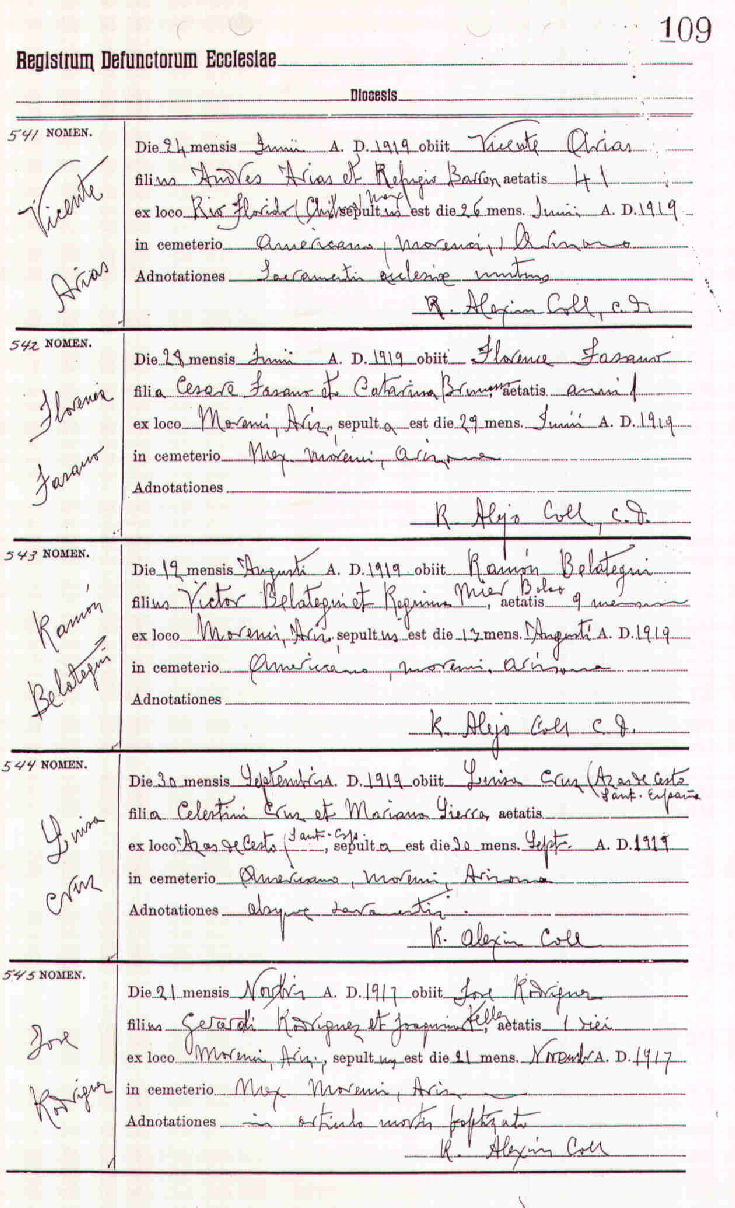 109
Registrum Defunctorum Ecclesiae
Diocesis
541 NOMEN.
Vicente
Arias
Die 24 mensis Junii A. D. 1919 obiit Vicente Arias
filius Andres Arias et Refugio Barron aetatis 41
ex loco Rio Florido (Chih. Mex) sepultus est die 26 mens. Junii A. D. 1919
in cemeterio Americano, Morenci, Arizona
Adnotationes Sacramentis eclesiae munitus
R. Alexius Coll, c.d.
542 NOMEN.
Florence
Fasano
Die 28 mensis Junii A. D. 1919 obiit Florence Fasano
filia Cesare Fasano et Catarina aetatis anni 1
ex loco Morenci, Ariz, sepulta est die 29 mens. Junii A. D. 1919
in cemeterio Mex Morenci, Arizona
Adnotationes
R. Alejo Coll, c.d.
543 NOMEN.
Ramón
Belategui
Die 19 mensis Augusti A. D. 1919 obiit Ramón Belategui
filius Victor Belategui et Regina Mier, aetatis 9
ex loco Morenci, Ariz. sepultus est die mens. Augusti A. D. 1919
in cemeterio Americano, Morenci, Arizona
Adnotationes
R. Alejo Coll c.d.
544 NOMEN.
Luisa
Cruz
Die 30 mensis Septembris A. D. 1919 obiit Luisa Cruz (Azas de Cesto
Sant. España
filia Celestini Cruz et Mariana Sierra, aetatis
ex loco Azas de Cesto (Sant. Esp., sepulta est die 30 mens. Sept. A. D. 1919
in cemeterio Americano, Morenci, Arizona
Adnotationes absque sacramentis.
R. Alexius Coll
545 NOMEN.
Jose
Rodriguez
Die 21 mensis Novbris A. D. 1917 obiit Jose Rodriguez
filius Gerardi Rodriguez et Joaquina Tellez, aetatis 1 diei
ex loco Morenci, Ariz., sepultus est die 21 mens. Novembr A. D. 1917
in cemeterio Mex Morenci, Ariz
Adnotationes in articulo mortis baptizato
R. Alexius Coll